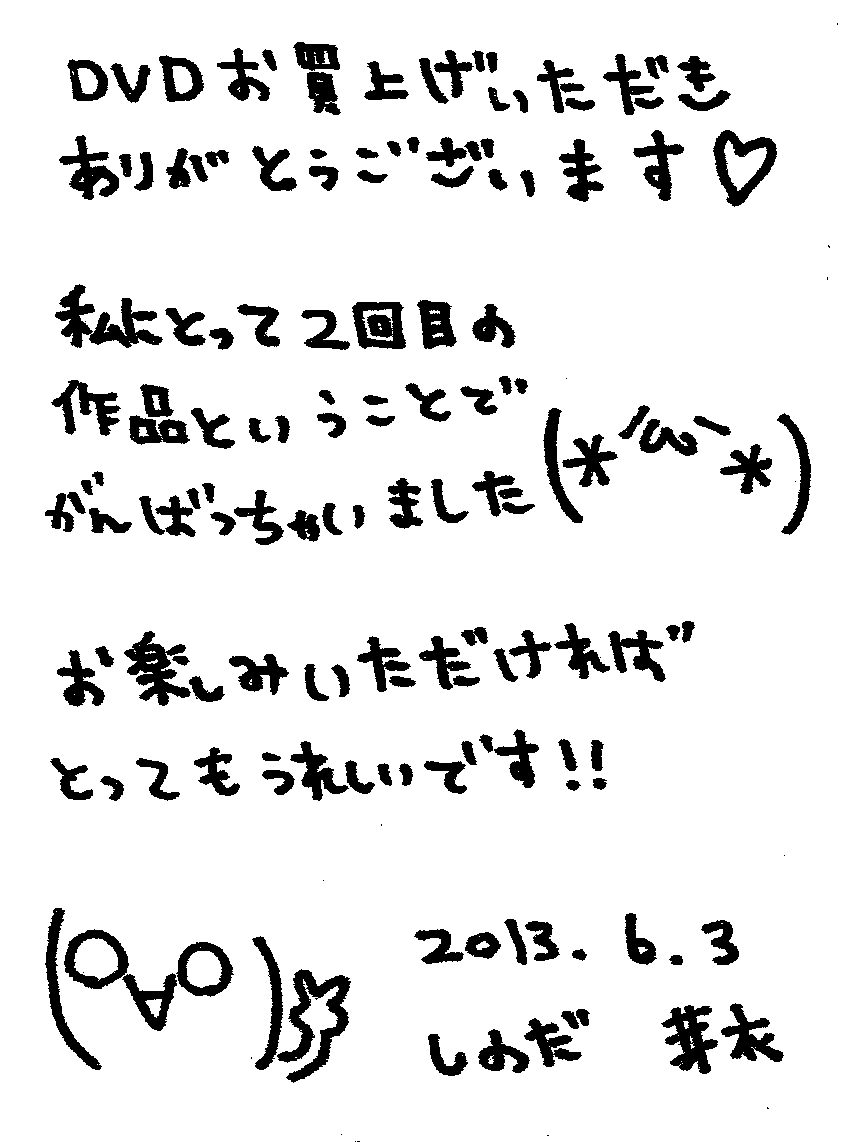 DVDお買上げいただき
ありがとうございます♡
私にとって2回目の
作品ということで
がんばっちゃいました(*´ω`*)
お楽しみいただければ
とってもうれしいです!!
2013.6.3
しのだ 芽衣